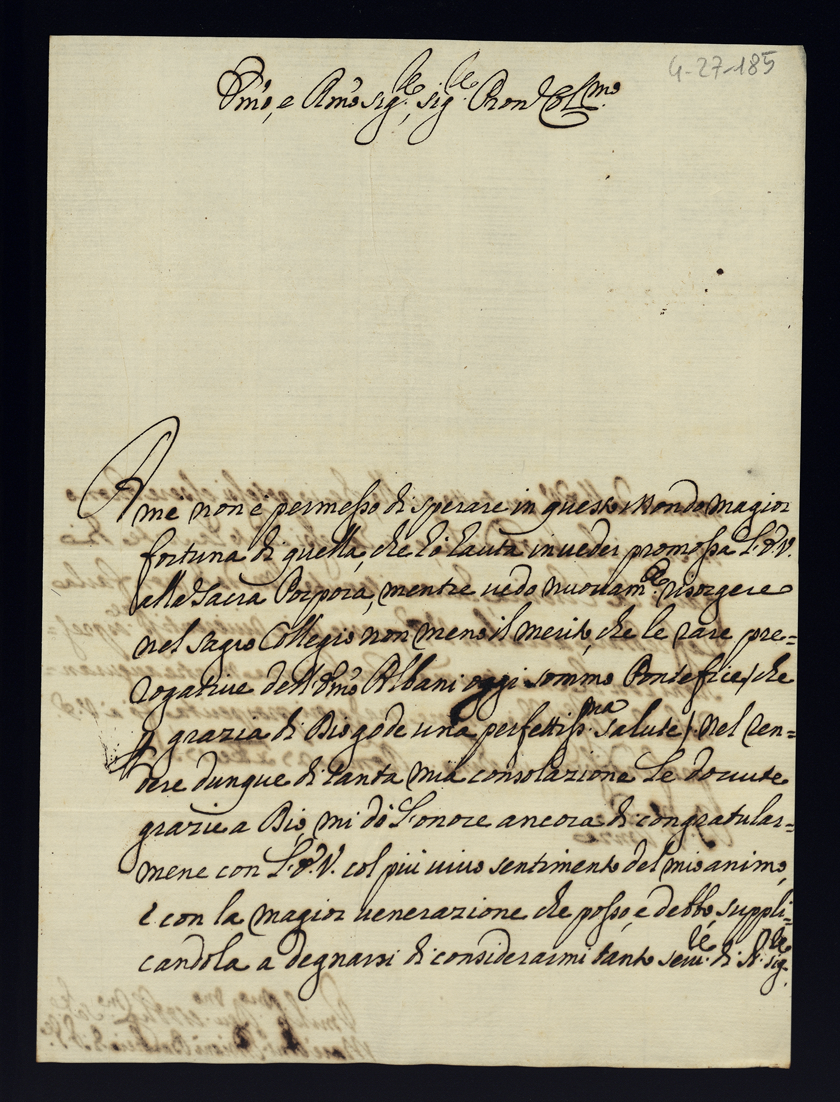 4-27-185
Em̃o, e Rm̃o Sig.re, Sig.re Pron Col.mo
A me non e permesso di sperare in questo Mondo magior
fortuna di quella, che hò hauta in veder promossa L'E.V.
alla Sacra Porpora, mentre vedo nuouam.te risorgere
nel Sagro Collegio non meno il merito, che le rare pre=
rogative dell'Em̃o Albani oggi sommo Pontefice /che
p grazia di Dio gode una perfettiss.ma salute/. Nel ren=
dere dunque di tanta mia consolazione le douute
grazie a Dio, mi dò l'onore ancora di congratular=
mene con L'E.V. col più uiuo sentimento del mio animo,
e con la magior uenerazione che posso, e debbo, suppli=
candola a degnarsi di considerarmi tanto seru.re di N. Sig.re